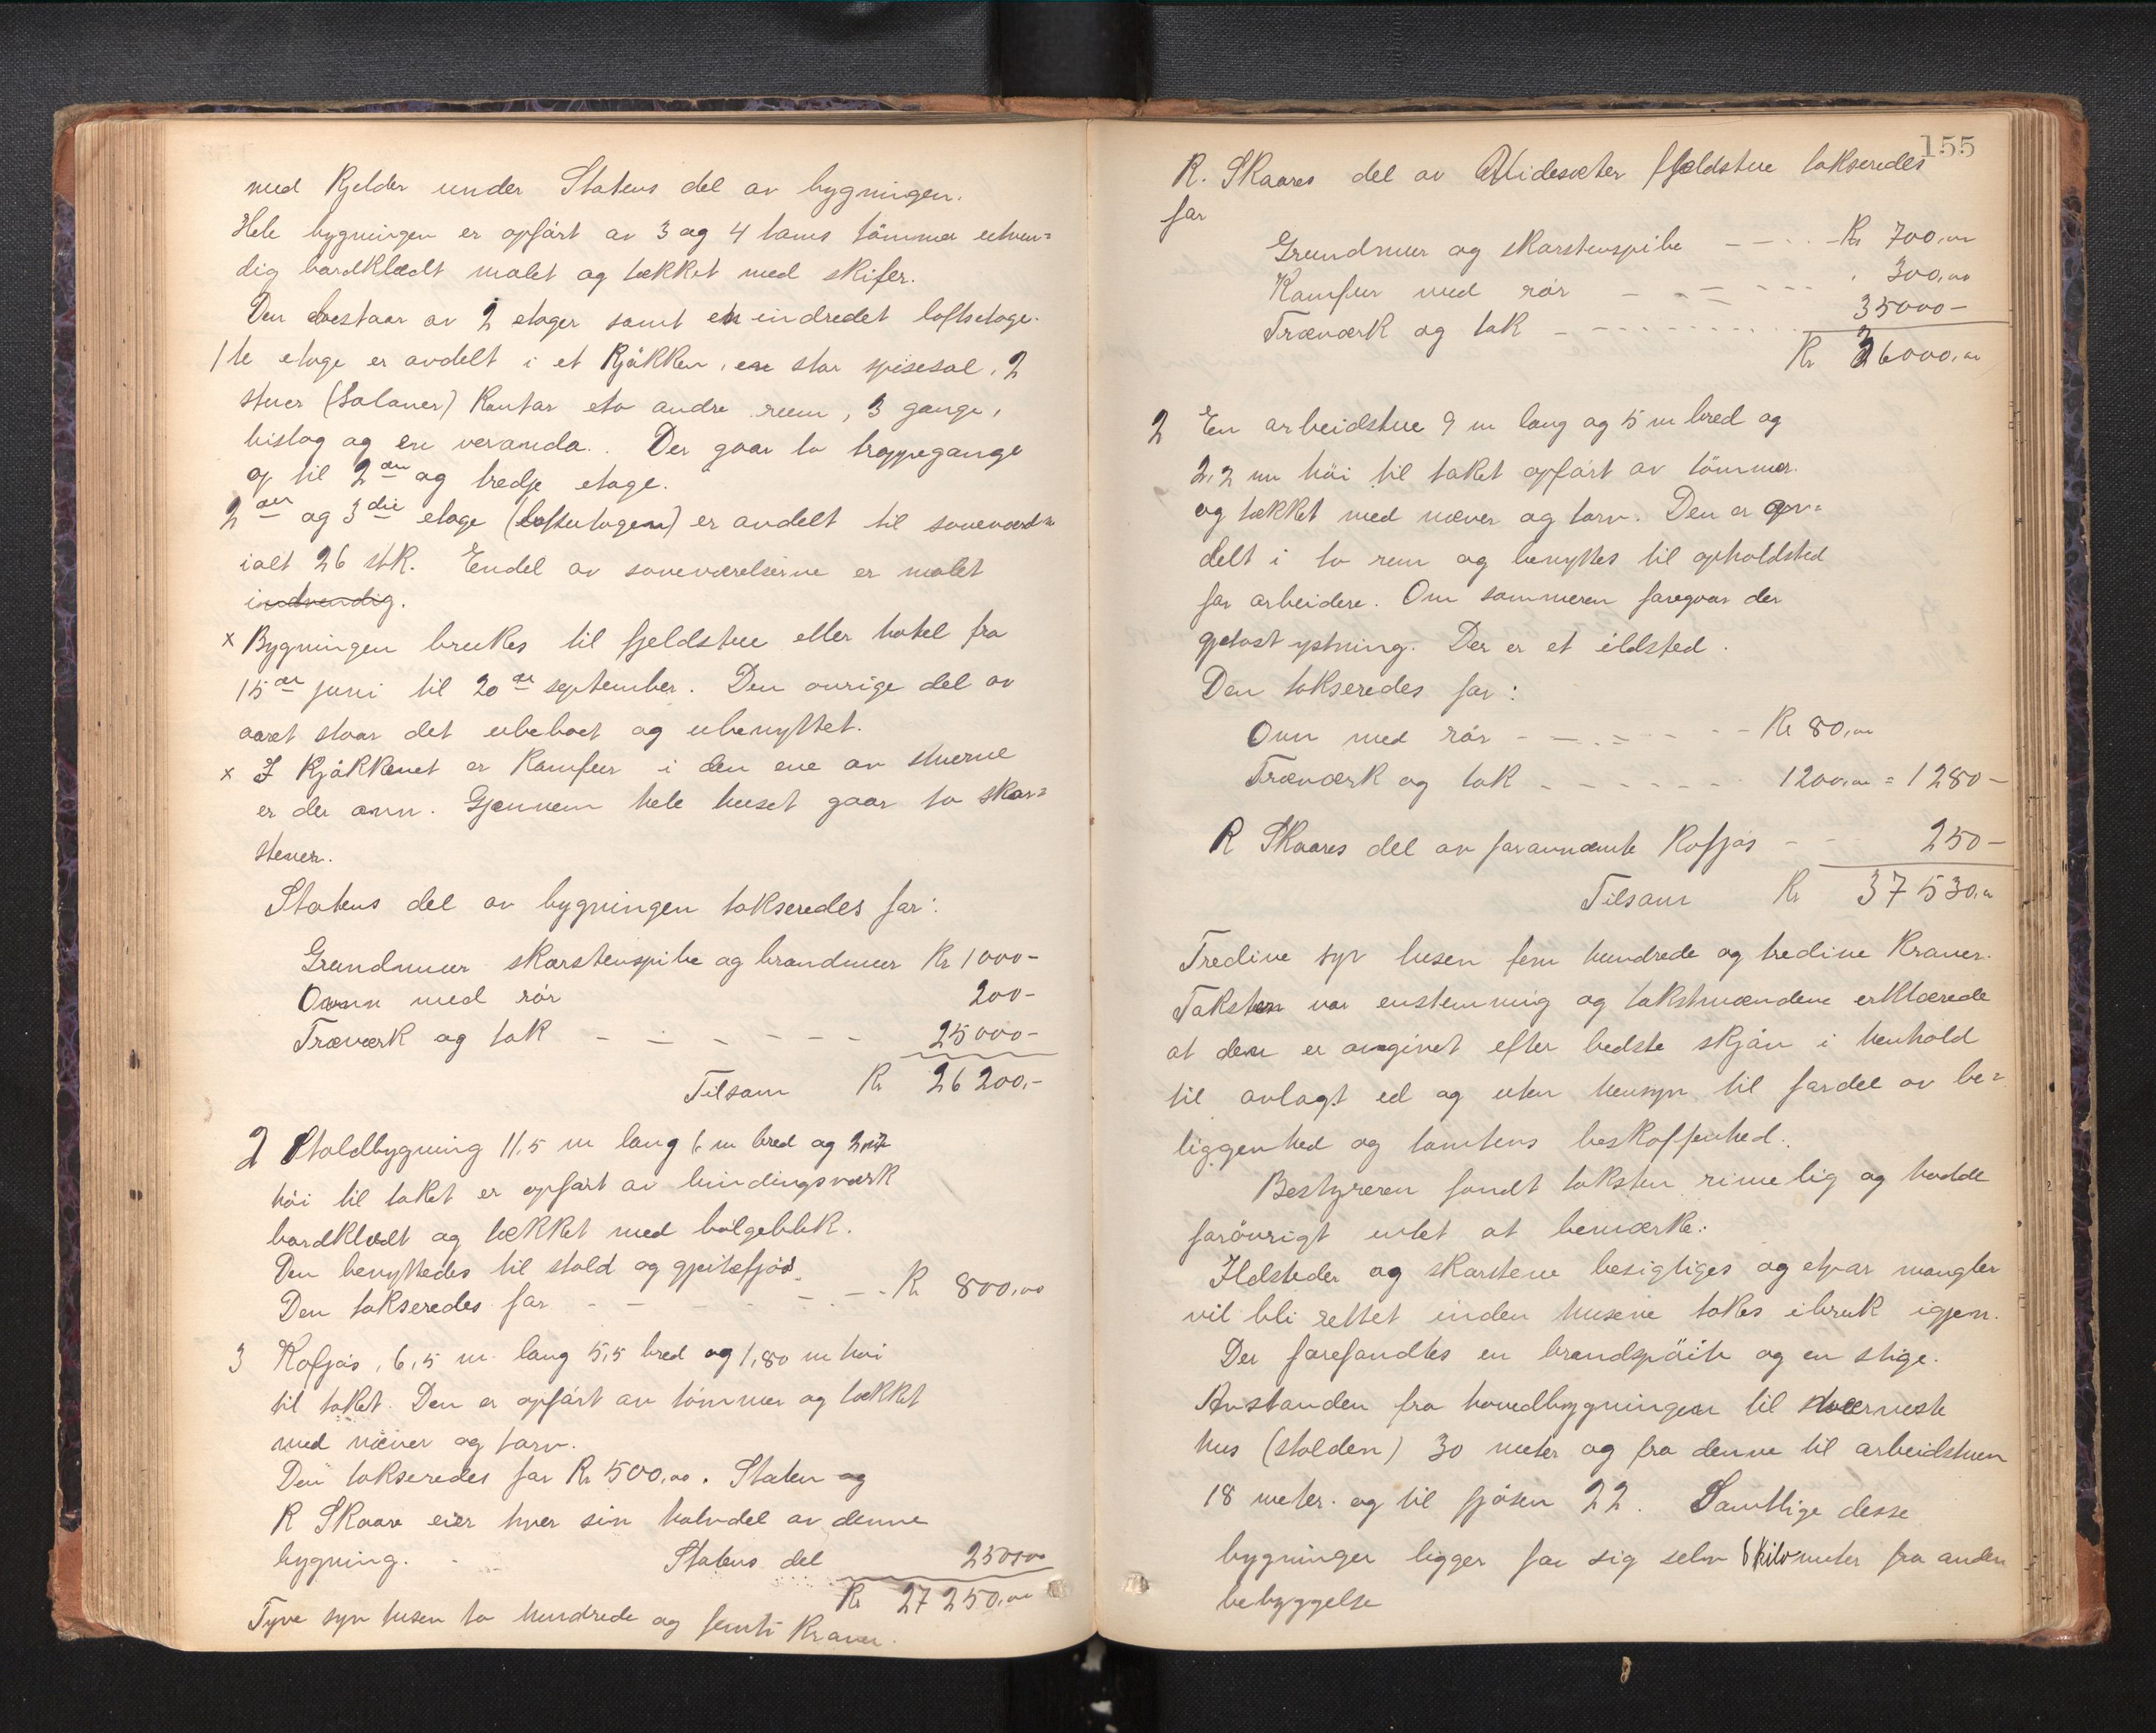 med Kjelder under Statens del av bygningen.
Hele bygningen er opført av 3 og 4 toms tømmer utven=
dig bordklædt malet og tækket med skifer.
Den bestaar av 2 etager samt en indredet loftsetage.
1te etage er avdelt i et Kjøkken, en stor spisesal, 2
stuer (Saloner) Kontor eto andre rum, 3 gange,
bislag og en veranda. Der gaar to trappegange
op til 2den og tredje etage.
2den og 3die etage (loftsetagen) er avdelt til soveværelser
ialt 26 stk. Endel av soveværelserne er malet
indvendig.
x Bygningen brukes til fjeldstue eller hotel fra
15de juni til 20de september. Den øvrige del av
aaret staar det ubeboet og ubenyttet.
x I Kjøkkenet er Komfur i den ene av stuerne
er der ovn. Gjennem hele huset gaar to skor=
stener.
Statens del av bygningen takseredes for:
Grundmur skorstenspibe og brandmur Kr 1000-
Ovnn med rør 200-
Træværk og tak - - - - - - 25000-
Tilsam Kr 26200.-
2 Staldbygning 11,5 m lang 6 m bred og
høi til taket er opført av bindingsværk
bordklædt og tækket med bølgeblik.
Den benyttedes til stald og gjeitefjøs.
Den takseredes for - - - - - Kr 800,00
3 Kofjøs, 6,5 m lang 5,5 bred og 1,80 m høi
til taket. Den er opført av tømmer og tækket
med næver og torv.
Den takseredes for Kr 500,00. Staten og
R Skaare eier hver sin halvdel av denne
bygning. Statens del 250,00
Kr 27250,00
Tyve syv tusen to hundrede og femti Kroner.
155
R. Skaares del av Videsæter fjeldstue takseredes
for
Grundmur og skorstenspibe - - - Kr 700,00
Komfur med rør - - - - 300,00
Træværk og tak - - - - 35000-
Kr 36000,00
2 En arbeidstue 9 m lang og 5 m bred og
2,2 m høi til taket opført av tømmer
og tækket med næver og torv. Den er av=
delt i to rum og benyttes til opholdsted
for arbeidere. Om sommeren foregaar der
gjetost ystning. Der er et ildsted.
Den takseredes for:
Ovn med rør - - - - - Kr 80,00
Træværk og tak - - - - - 1200,00 = 1280-
R Skaares del av foravnævnte Kofjøs - - 250-
Tilsam Kr 37530,00
Tredive syv tusen fem hundrede og tredive Kroner.
Taksten var enstemmig og takstmændene erklærede
at den er avgivet efter bedste skjøn i henhold
til avlagt ed og uten hensyn til fordel av be=
liggenhed og tomtens beskaffenhed.
Bestyreren fandt taksten rimelig og hadde
forøvrigt intet at bemærke.
Ildsteder og skorstene besigtiges og etpar mangler
vil bli rettet inden husene takes ibruk igjen.
Der forefandtes en brandspøite og en stige.
Avstanden fra hovedbygningen til nærmeste
hus (stalden) 30 meter og fra denne til arbeidstuen
18 meter. og til fjøsen 22. Samtlige desse
bygninger ligger for sig selv 6 kilometer fra anden
bebyggelse